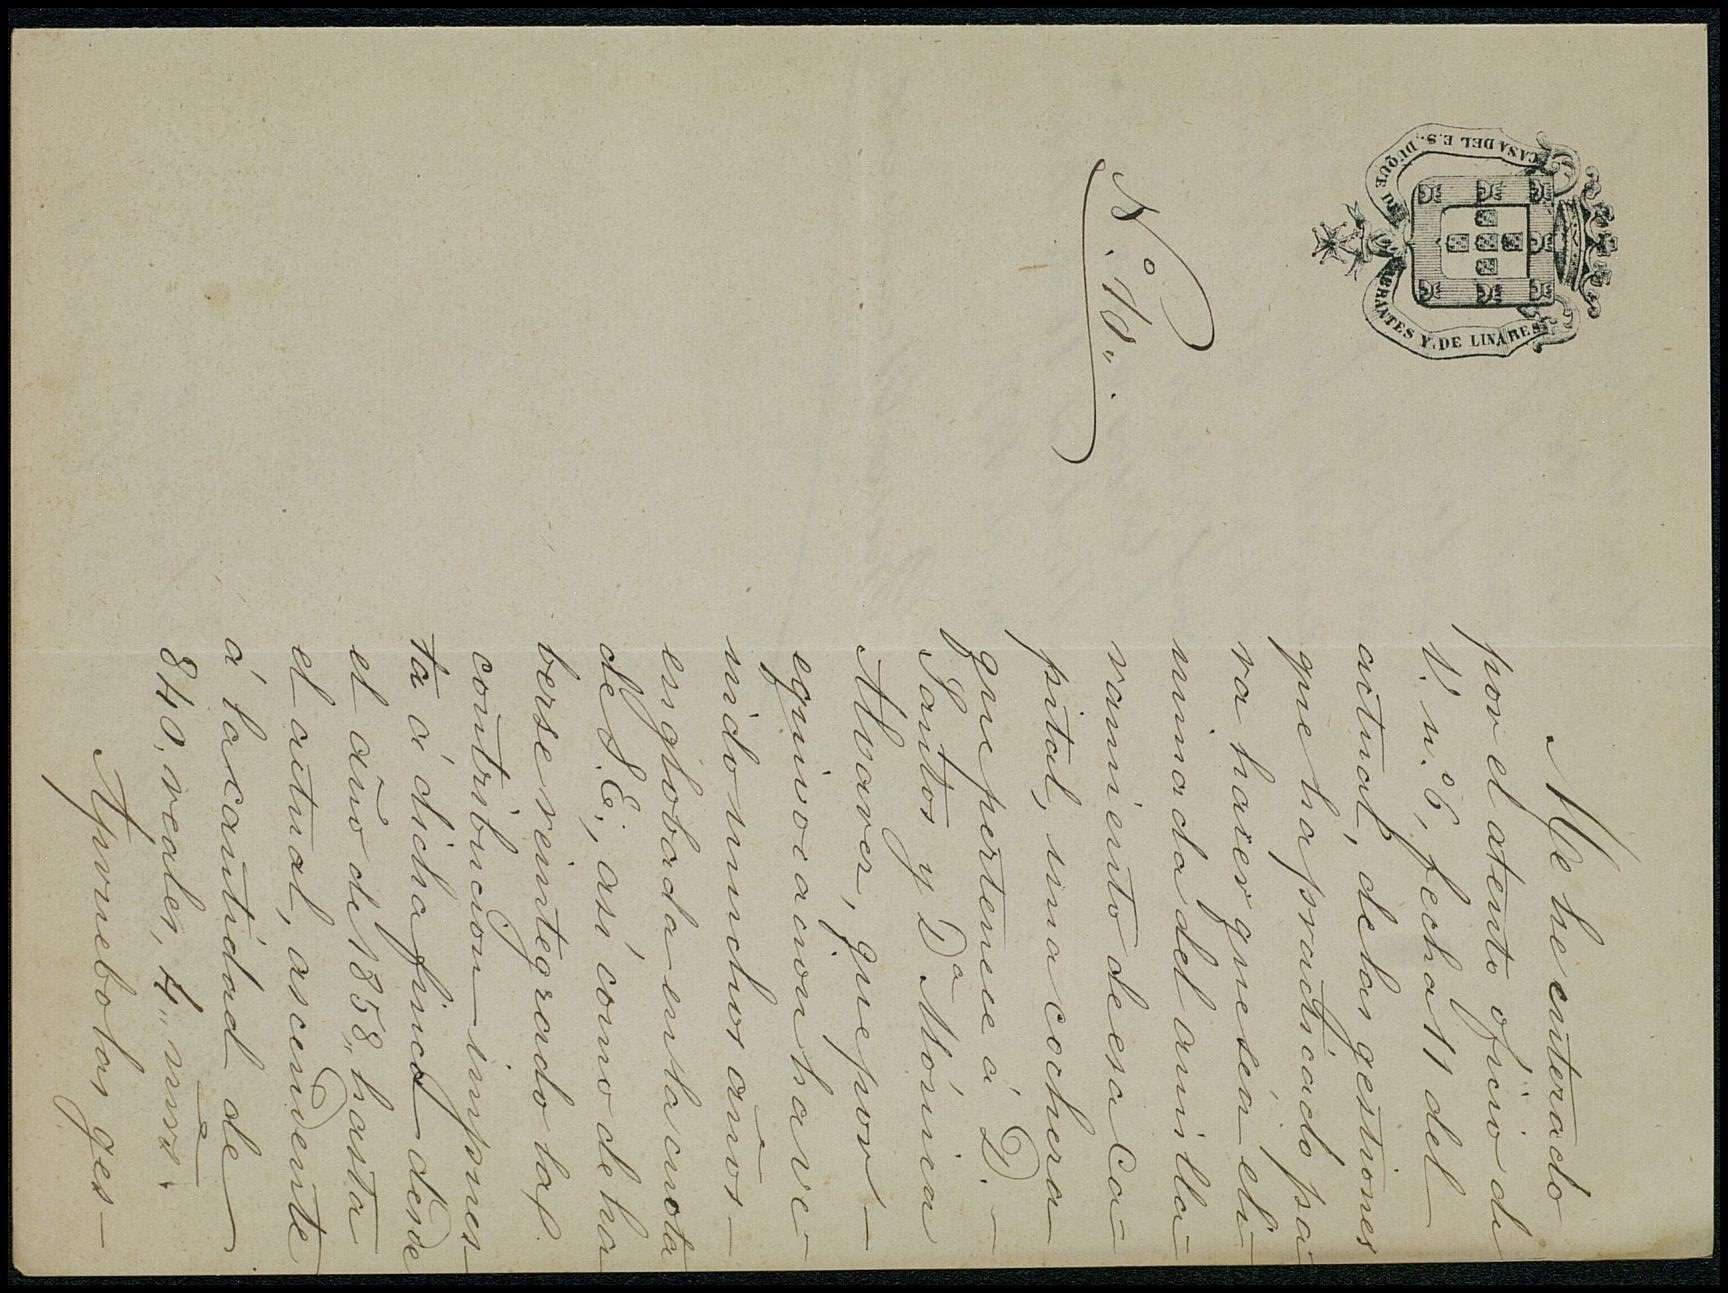 CASA DEL E.S. DUQUE DE ABRANTES Y. DE LINARES
N.º 10.,
Me he enterado
por el atento oficio de
V. n.º 6, fecha 11 del
actual, de las gestiones
que ha practicado pa-
ra hacer que sea eli-
minada del amilla-
ramiento de esa Ca-
pital, una cochera
que pertenece á D.
Santos y Dª Mónica
Alvarez, que por
equivocacion ha ve-
nido muchos años
englobada en la cuota
de S.E.; asi como de ha
berse reintegrado la
contribucion impues-
ta á dicha finca desde
el año de 1858, hasta
el actual, ascendente
á la cantidad de
840, reales, 4,,
Apruebo las ges-